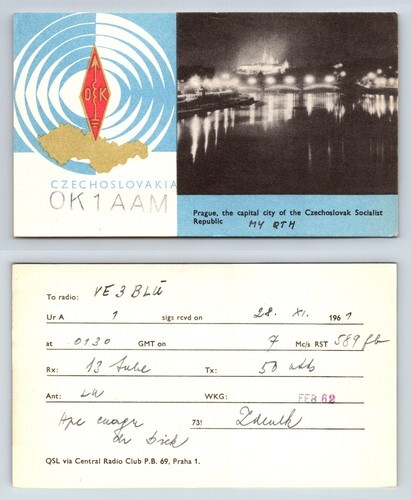 OK
CZECHOSLOVAKIA
OK1AAM
Prague, the capital city of the Czechoslovak Socialist
Republic MY QTH
To radio: VE3BLU
Ur A 1 sigs rcvd on 28. XI. 1961
at 0130 GMT on 7 Mc/s RST 589 fb
Rx: 13 tube Tx: 50 watts
Ant: LW WKG: FEB 62
Hpe cuagn 73! Zdenek
dr Dick
QSL via Central Radio Club P.B. 69, Praha 1.